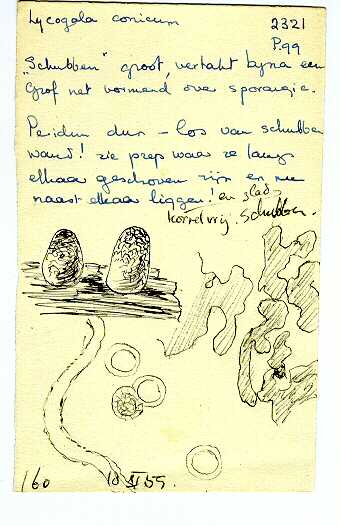 Lycogala conicum
2321
P.99
"Schubben" groot, vertakt byna een
grof net vormend over sporangie.
Peridium dun - los van schubben
wand! zie prep waar ze langs
elkaar geschoven zijn en nu
naast elkaar liggen! en glad
korrelvrij. Schubben.
160
10 XI 55.